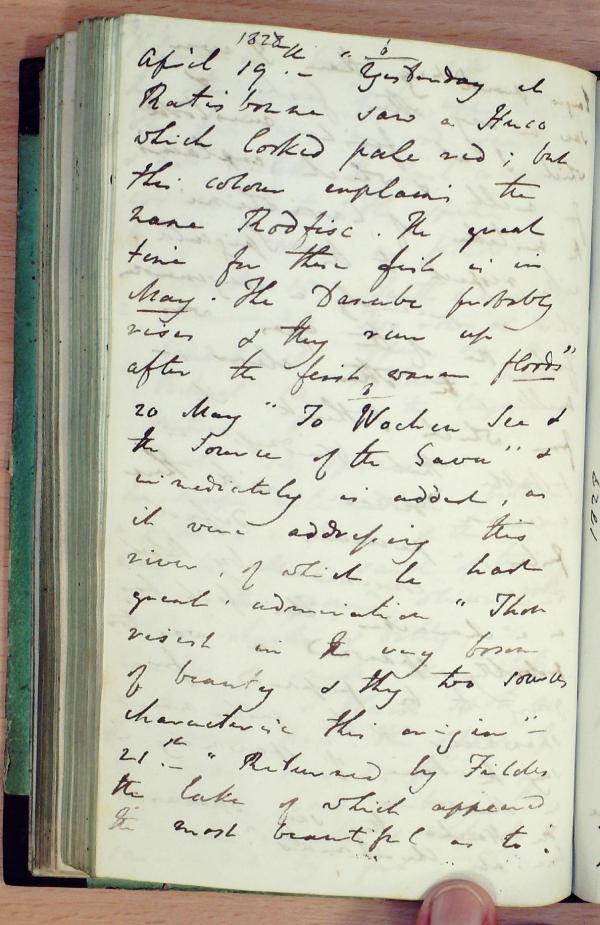 1828
April 19th.– "Yesterday at
Ratisbonne saw a Huco
which looked pale red; but
this colour explains the
name Rodfisc. The great
time for these fish is in
May. The Danube probably
rises & they run up
after the first warm floods"
20 May "To Wochein See &
the Source of the Sava" &
immediately is added, as
it were addressing this
river, of which he had
great admiration "Thou
risest in the very bosom
of beauty & thy two sources
characterise this origin"–
21st.– "Returned by Feldes
the lake of which appeared
the most beautiful as to
1828